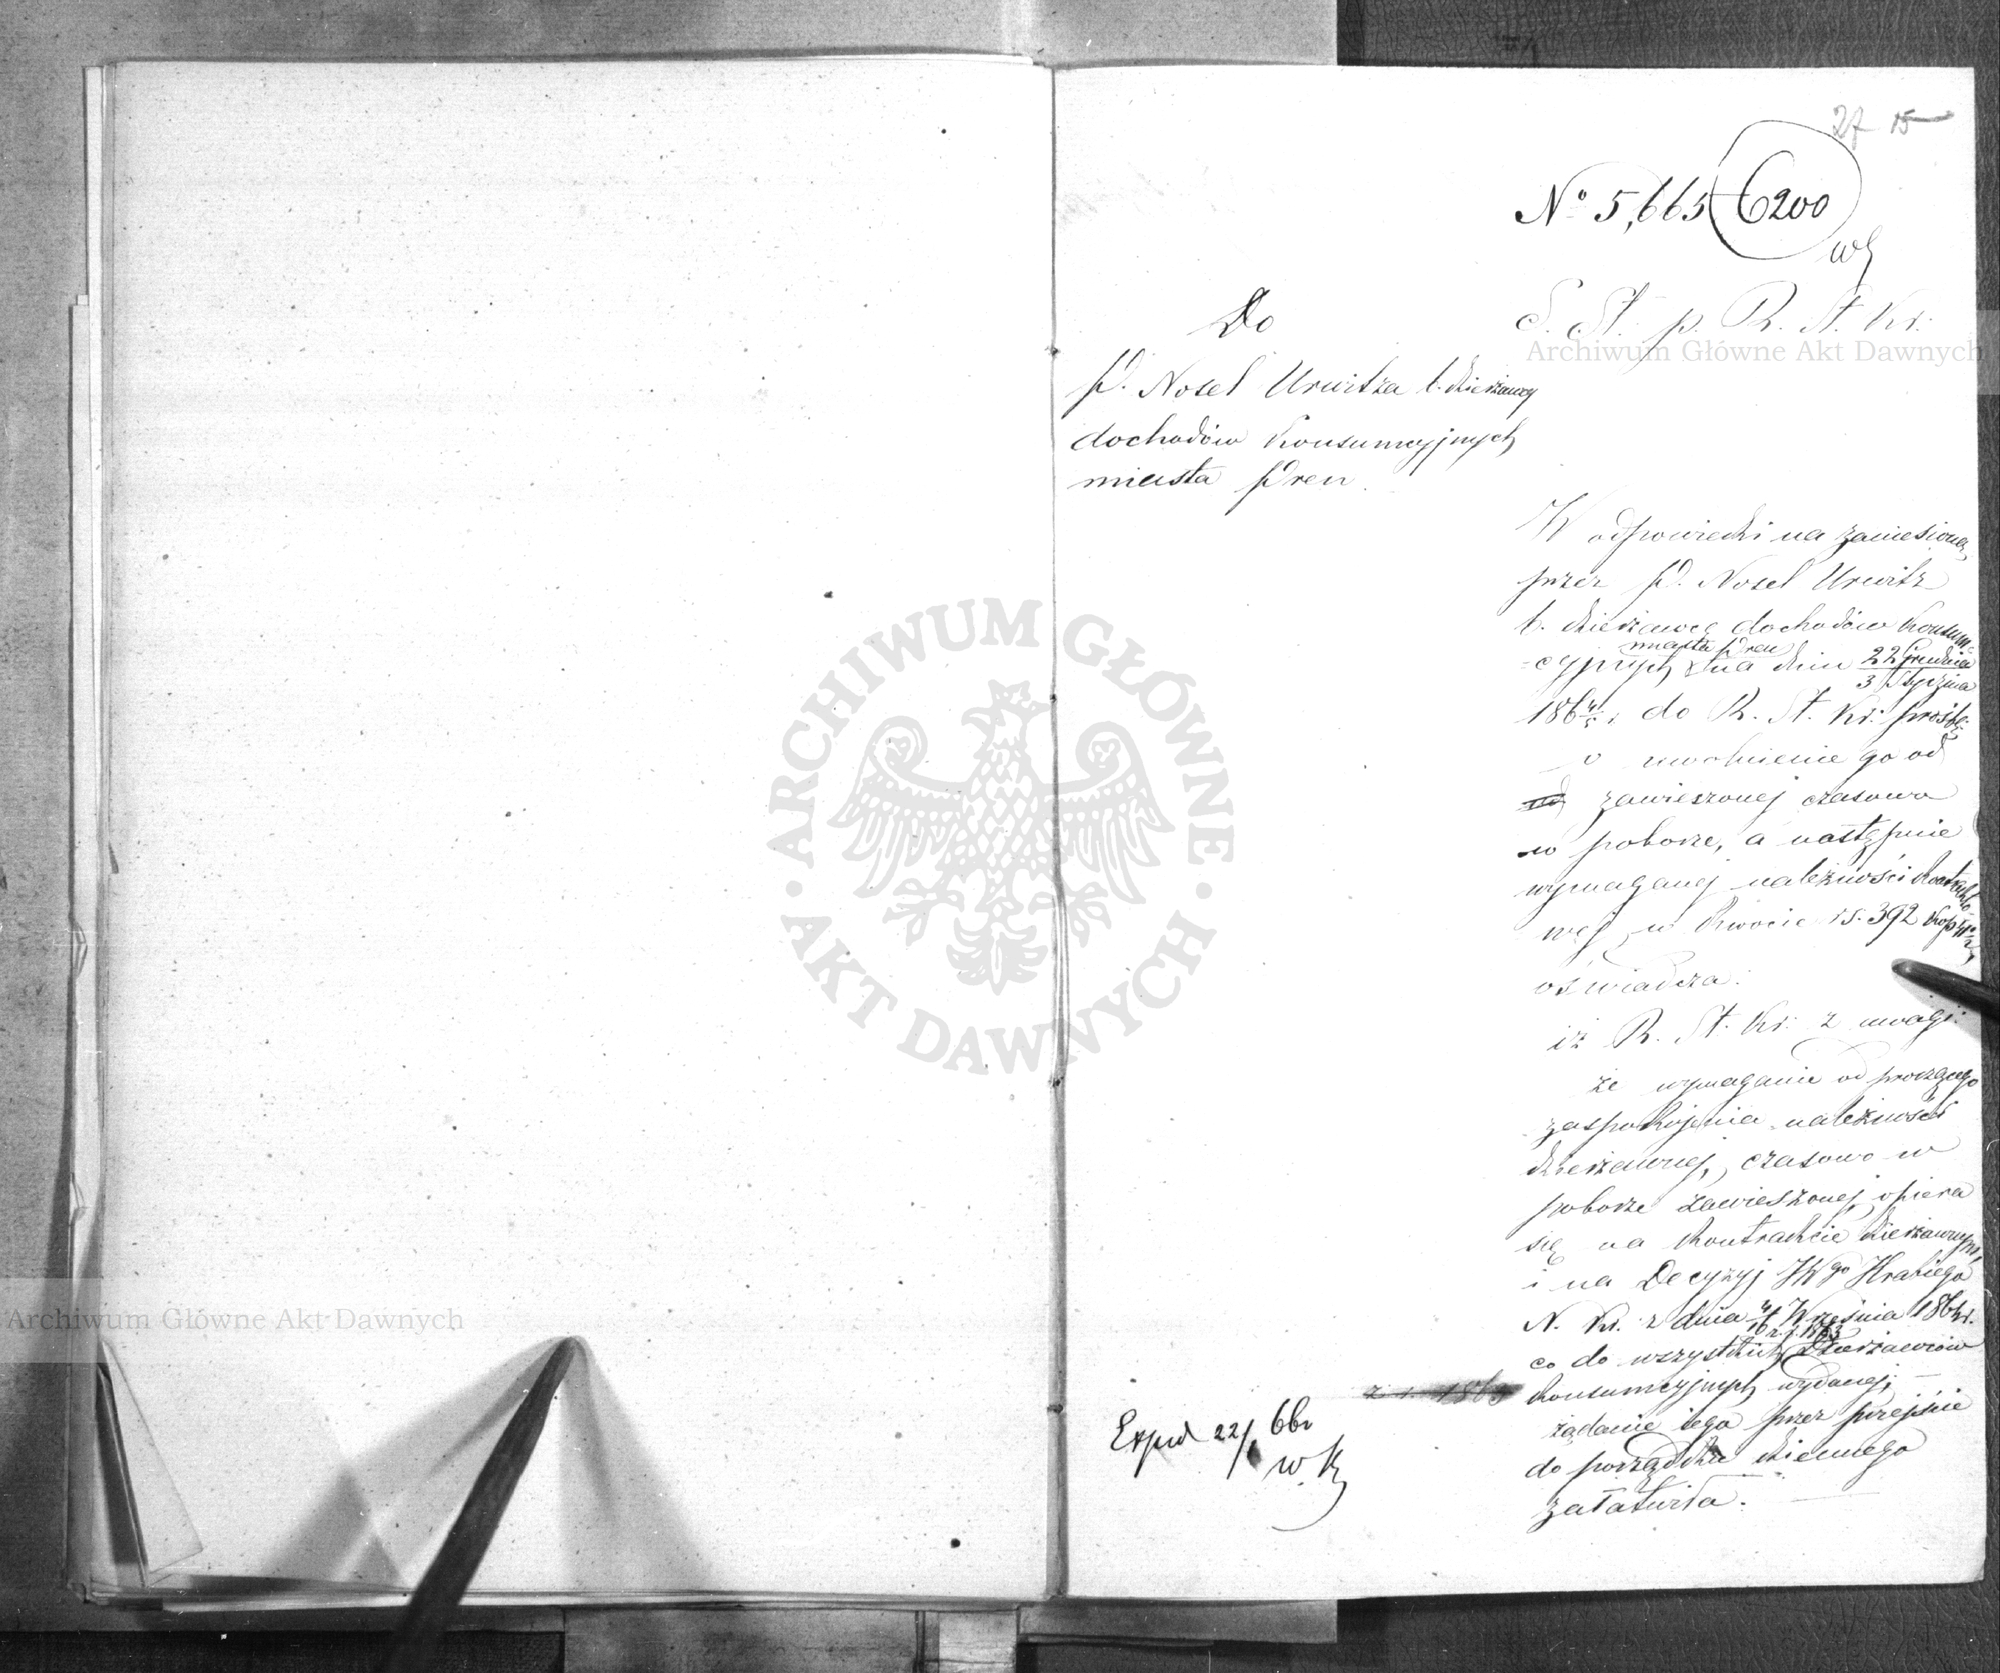 27 15
No 5,665/6200
S. St. p. R. St. Kr:
Do
P. Nosel Urwitza b. dzierżawcy
dochodów Konsumcyjnych
miasta Pren
W odpowiedzi na zaniesioną
przez P. Nosel Urwitz
b. dzierżawcę dochodów Konsum-
cyjnych miasta Pren na dniu 22 Grudnia / 3 Stycznia
1864/5 r. do R. St. Kr: prośbę
o uwolnienie go od
zawieszonej czasowo
w poborze, a następnie
wymaganej należności kontrakto-
wej, w kwocie rs. 392 kop.
oświadcza:
iż R. St. Kr. z uwagi:
że wymaganie od proszącego
zaspokojenia należności
dzierżawnej, czasowo w
poborze zawieszonej, opiera
się na kontrakcie dzierżawnym,
i na Decyzyj JWgo Hrabiego
N. Kr. z dnia 4/16 Września 1864 r.
co do wszystkich Dzierżawców
konsumcyjnych wydanej;
żądanie jego przez przejście
do porządku dziennego
załatwiła.
Exped 22/ 66r
w. K
Archiwum Główne Akt Dawnych
Archiwum Główne Akt Dawnych
ARCHIWUM GŁÓWNE
AKT DAWNYCH